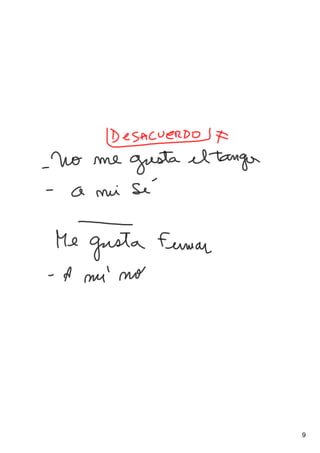 DESACUERDO ≠
- No me gusta el tango
- a mi sé
Me gusta Fumar
- A mí no
9